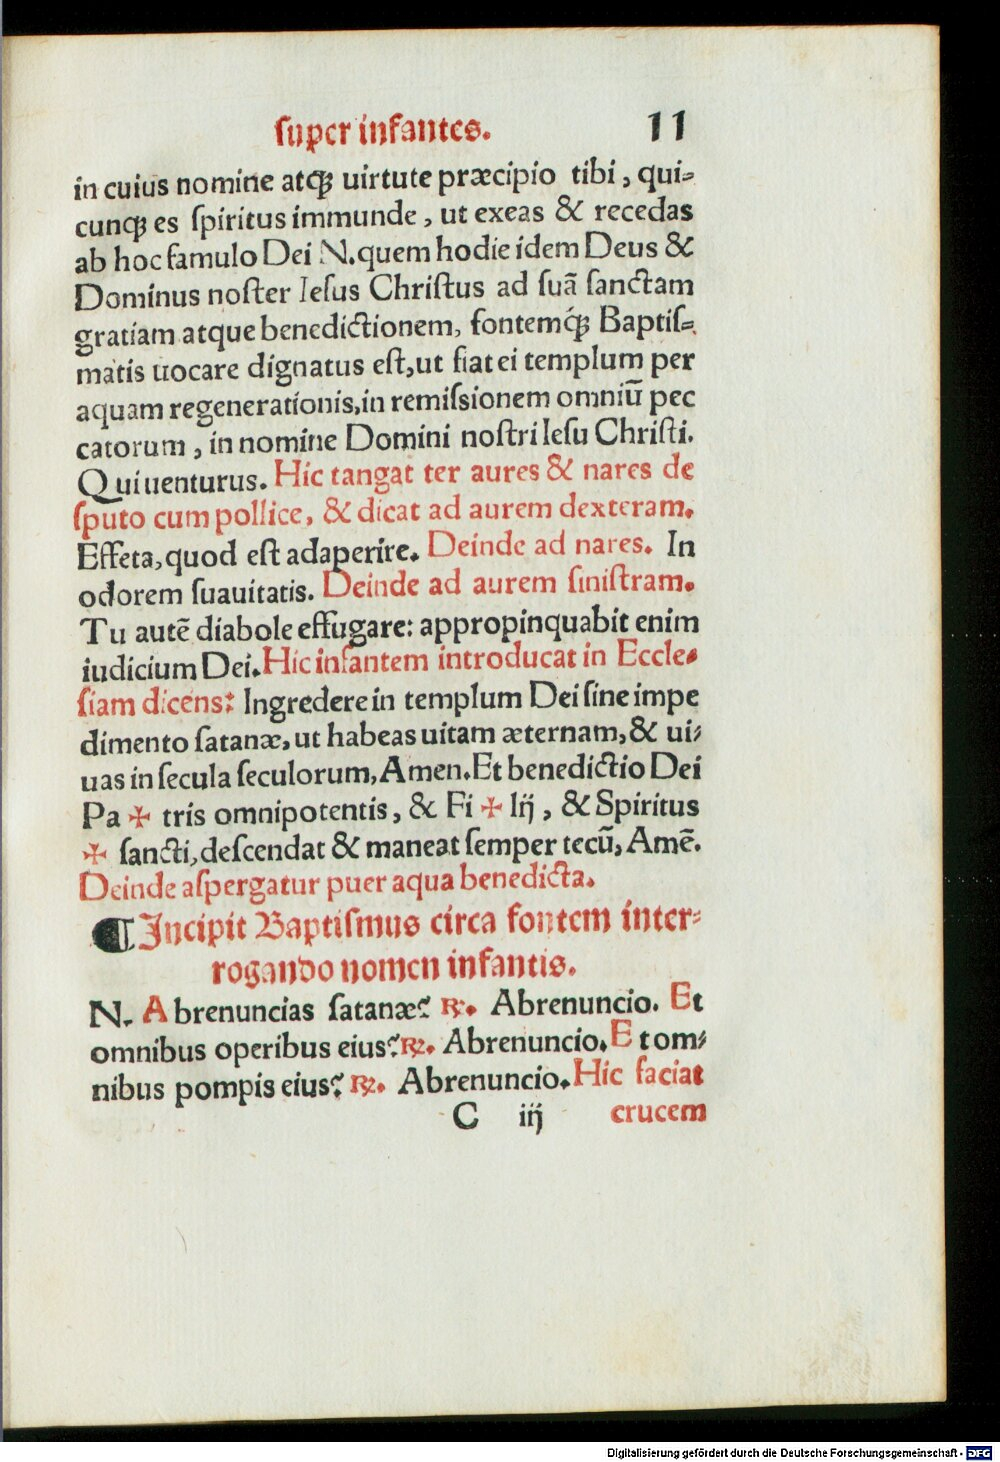 super infantes. 11
in cuius nomine atq; uirtute præcipio tibi, qui⸗
cunq; es ſpiritus immunde, ut exeas & recedas
ab hoc famulo Dei N. quem hodie idem Deus &
Dominus noſter Ieſus Chriſtus ad ſuã ſanctam
gratiam atque benedictionem, fontemq́; Baptiſ⸗
matis uocare dignatus eſt, ut fiat ei templum per
aquam regenerationis, in remiſsionem omniũ pec
catorum, in nomine Domini noſtri Ieſu Chriſti.
Qui uenturus. Hic tangat ter aures & nares de
ſputo cum pollice, & dicat ad aurem dexteram.
Effeta, quod eſt adaperire. Deinde ad nares. In
odorem ſuauitatis. Deinde ad aurem ſiniſtram.
Tu autẽ diabole effugare: appropinquabit enim
iudicium Dei. Hic infantem introducat in Eccle⸗
ſiam dicens: Ingredere in templum Dei ſine impe
dimento ſatanæ, ut habeas uitam æternam, & ui⸗
uas in ſecula ſeculorum, Amen. Et benedictio Dei
Pa ✠ tris omnipotentis, & Fi ✠ lij, & Spiritus
✠ ſancti, deſcendat & maneat ſemper tecũ, Amẽ.
Deinde aſpergatur puer aqua benedicta.
¶ Incipit Baptiſmus circa fontem inter⸗
rogando nomen infantis.
N. Abrenuncias ſatanæ? ℟. Abrenuncio. Et
omnibus operibus eius? ℟. Abrenuncio. Et om⸗
nibus pompis eius? ℟. Abrenuncio. Hic faciat
C iij crucem
Digitalisierung gefördert durch die Deutsche Forschungsgemeinschaft - DFG